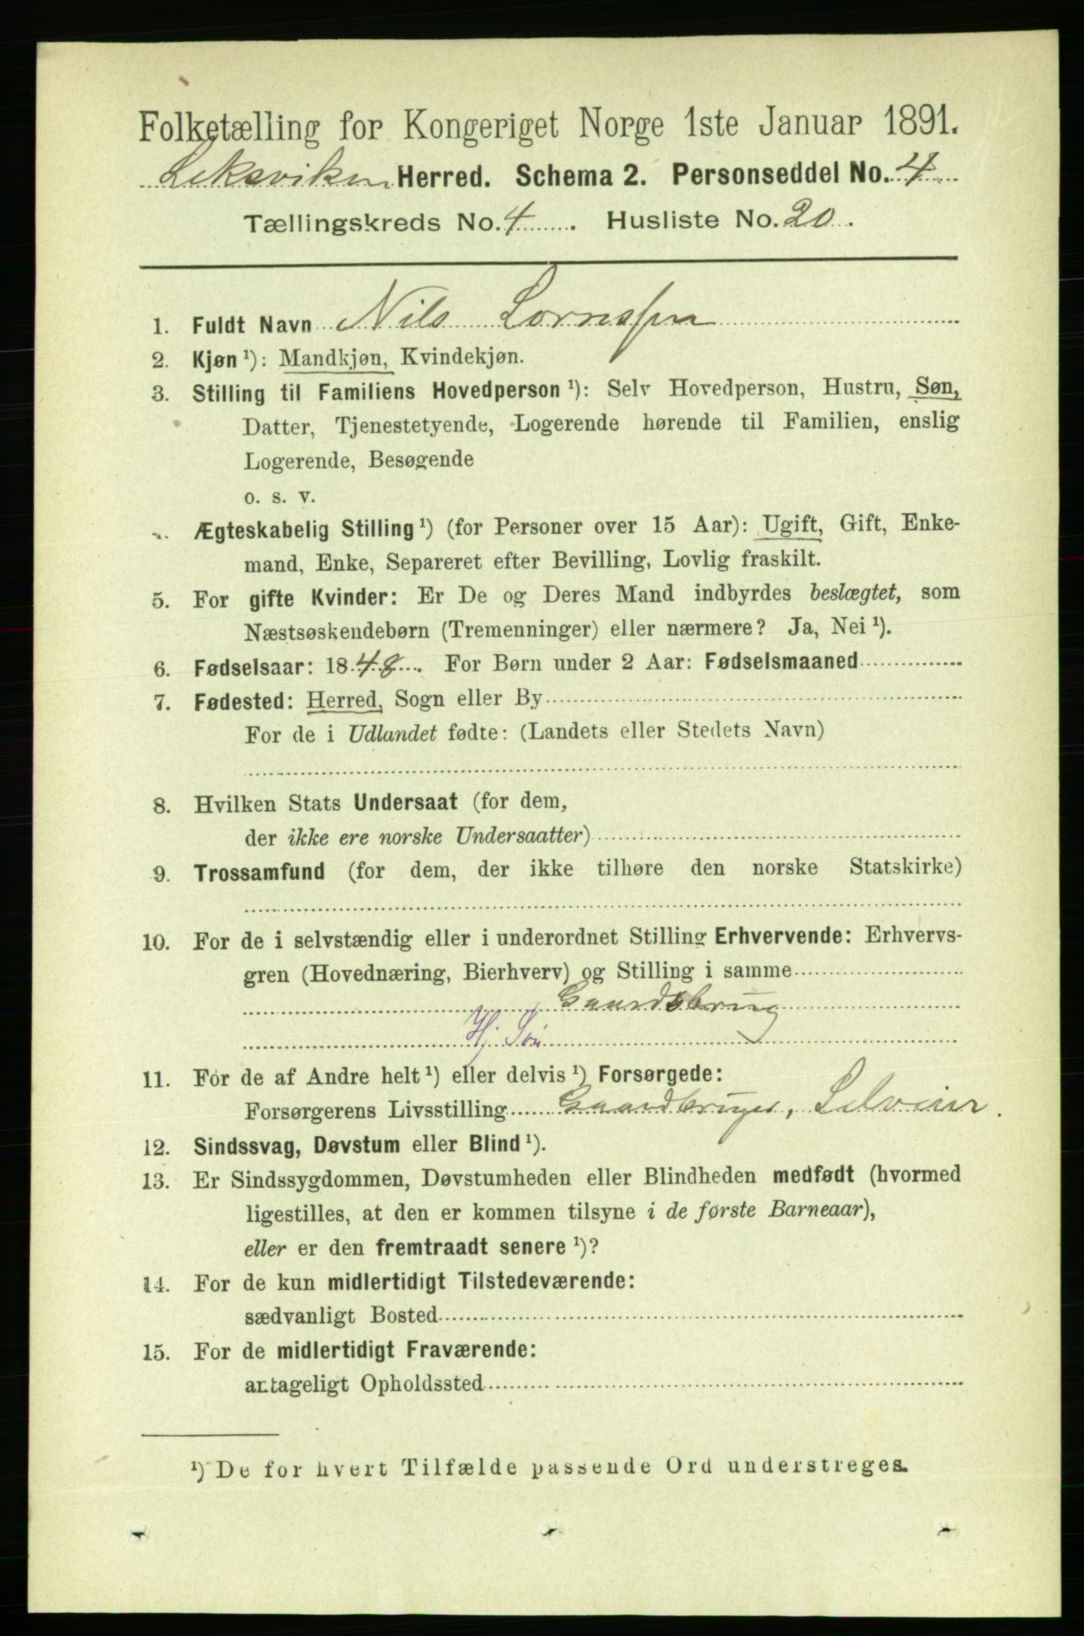 Folketælling for Kongeriget Norge 1ste Januar 1891.
Leksviken Herred. Schema 2. Personseddel No. 4
Tællingskreds No. 4. Husliste No. 20.
1. Fuldt Navn Nils Lornssen
2. Kjøn ¹): Mandkjøn, Kvindekjøn.
3. Stilling til Familiens Hovedperson ¹): Selv Hovedperson, Hustru, Søn,
Datter, Tjenestetyende, Logerende hørende til Familien, enslig
Logerende, Besøgende
o. s. v.
Ægteskabelig Stilling ¹) (for Personer over 15 Aar): Ugift, Gift, Enke-
mand, Enke, Separeret efter Bevilling, Lovlig fraskilt.
5. For gifte Kvinder: Er De og Deres Mand indbyrdes beslægtet, som
Næstsøskendebørn (Tremenninger) eller nærmere? Ja, Nei ¹).
6. Fødselsaar: 1848. For Børn under 2 Aar: Fødselsmaaned
7. Fødested: Herred, Sogn eller By
For de i Udlandet fødte: (Landets eller Stedets Navn)
8. Hvilken Stats Undersaat (for dem,
der ikke ere norske Undersaatter)
9. Trossamfund (for dem, der ikke tilhøre den norske Statskirke)
10. For de i selvstændig eller i underordnet Stilling Erhvervende: Erhvervs-
gren (Hovednæring, Bierhverv) og Stilling i samme
Gaardsbrug
Hj. Søn
11. For de af Andre helt ¹) eller delvis ¹) Forsørgede:
Forsørgerens Livsstilling Gaardbruger, Selveier.
12. Sindssvag, Døvstum eller Blind ¹).
13. Er Sindssygdommen, Døvstumheden eller Blindheden medfødt (hvormed
ligestilles, at den er kommen tilsyne i de første Barneaar),
eller er den fremtraadt senere ¹)?
14. For de kun midlertidigt Tilstedeværende:
sædvanligt Bosted
15. For de midlertidigt Fraværende:
antageligt Opholdssted
¹) De for hvert Tilfælde passende Ord understreges.